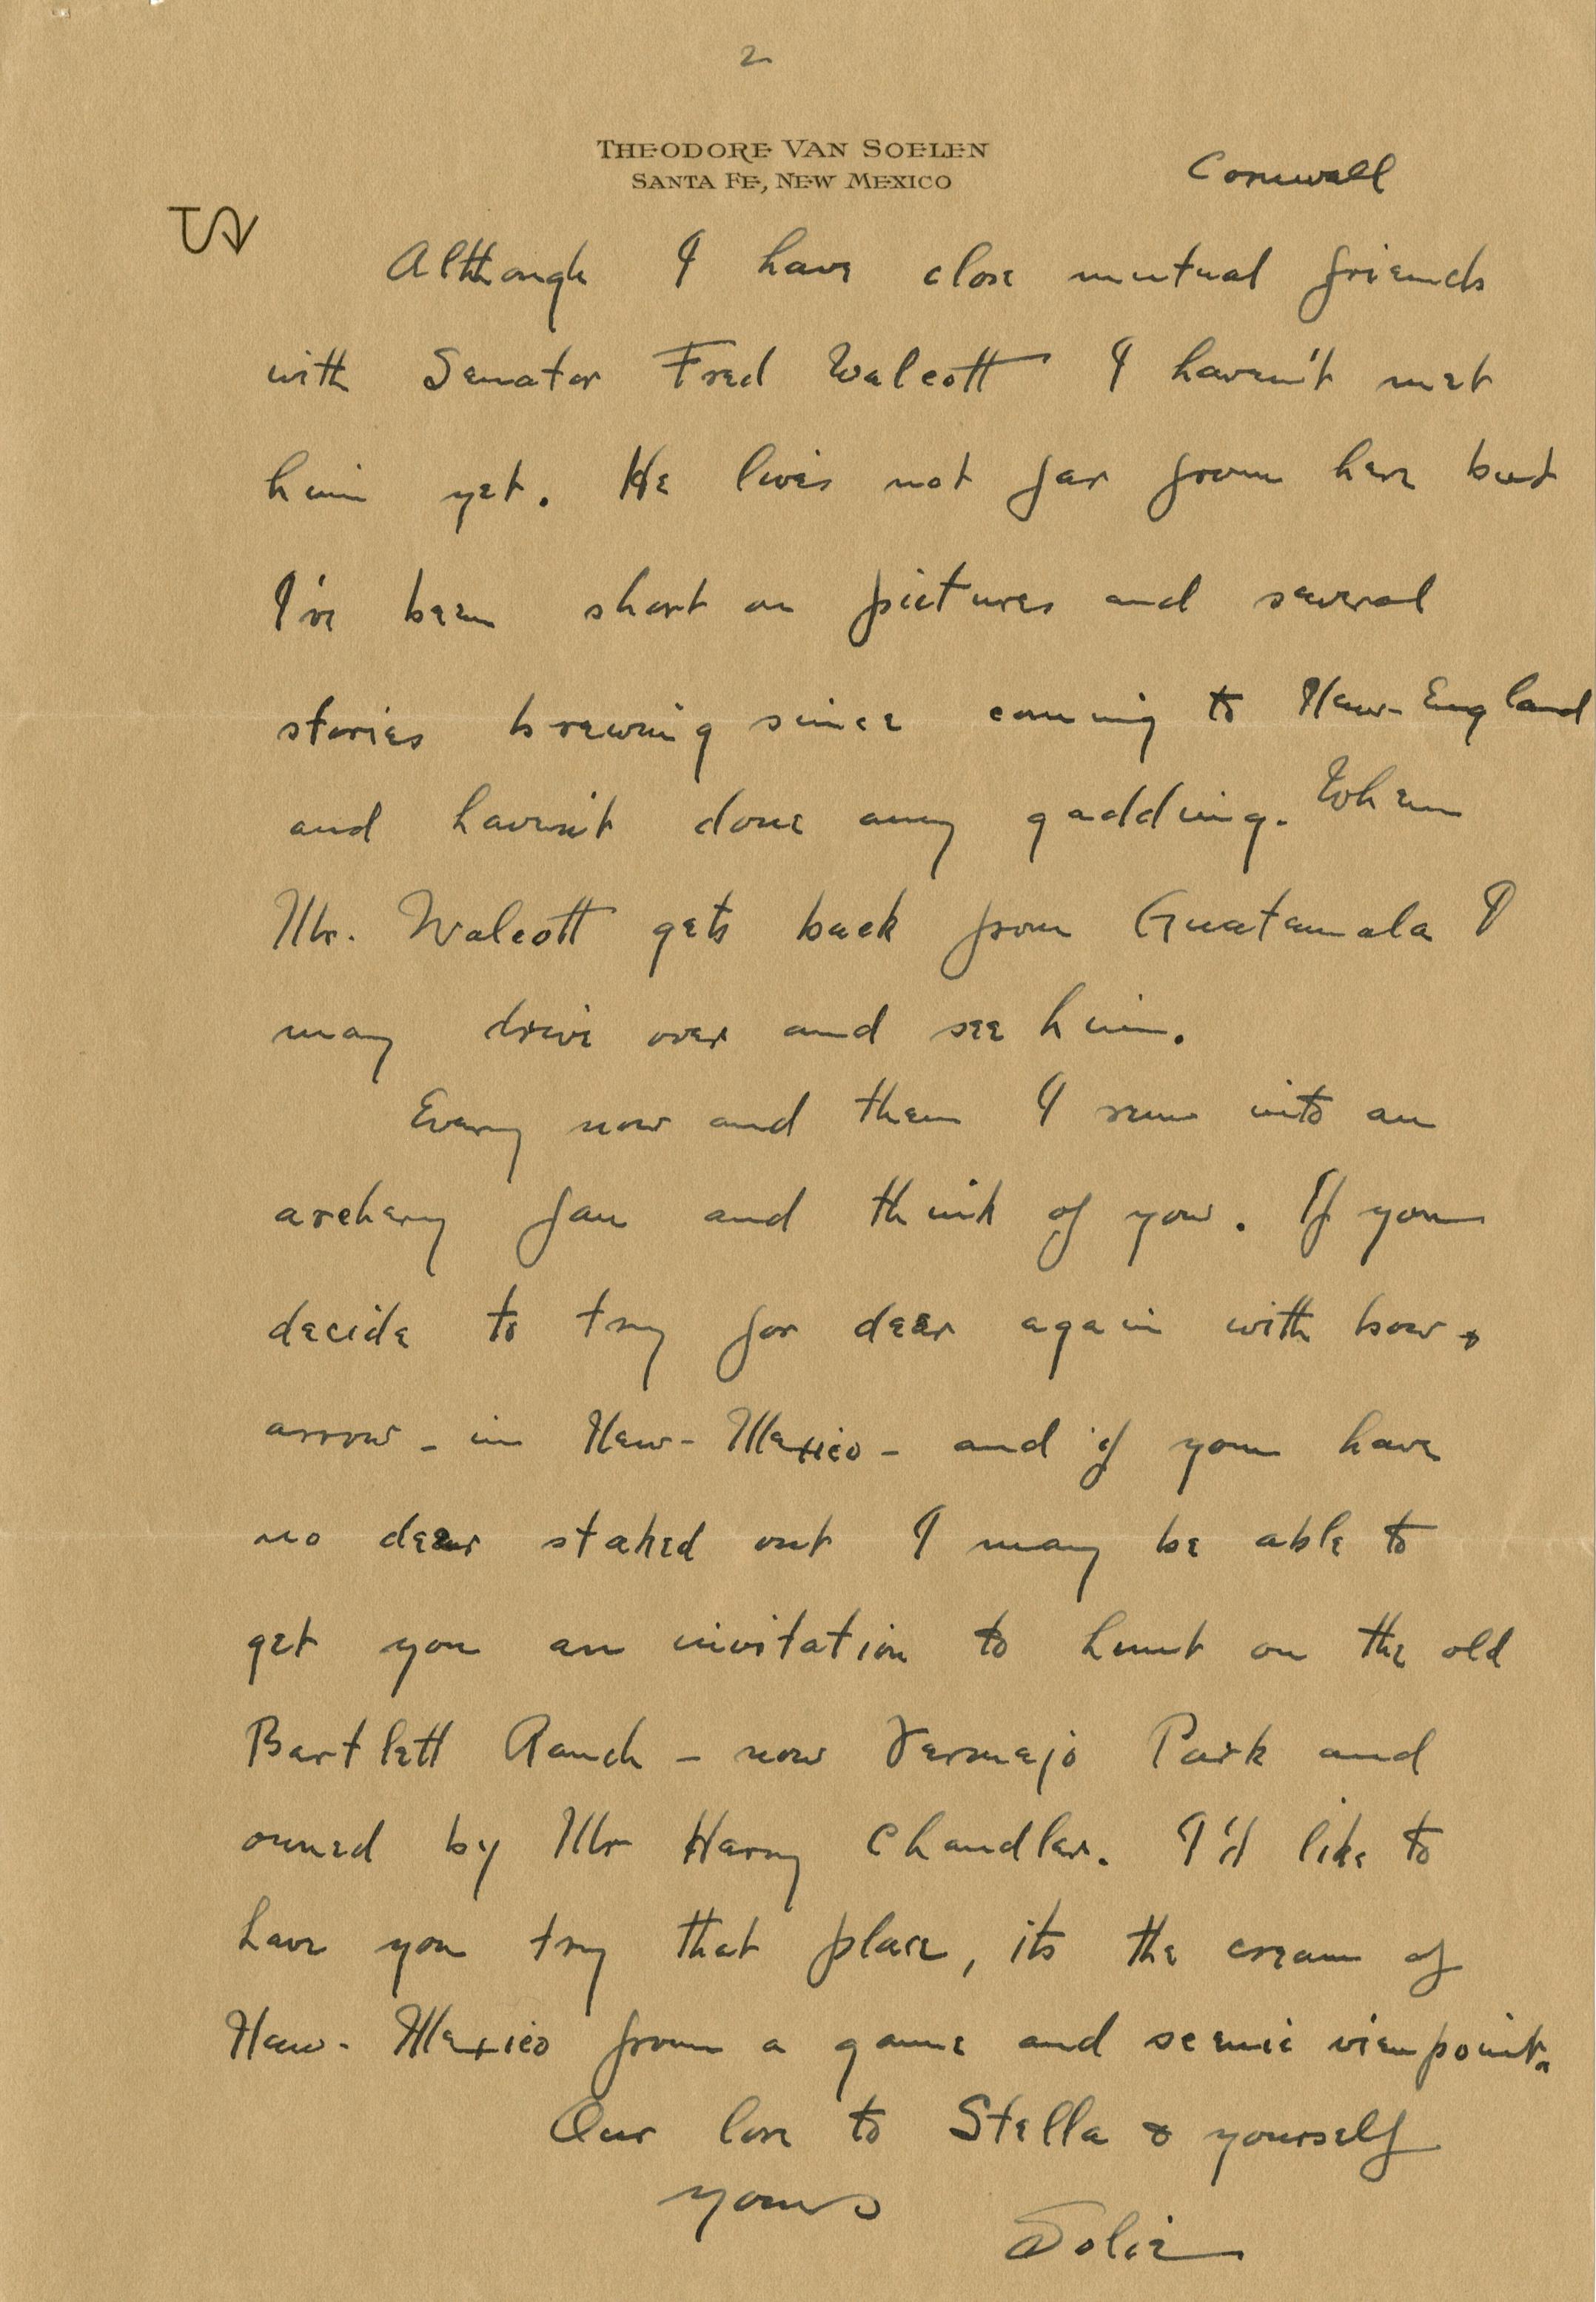 2
THEODORE VAN SOELEN
SANTA FE, NEW MEXICO
Cornwall
TSV
Although I have close mutual friends
with Senator Fred Walcott I haven't met
him yet. He lives not far from here but
I've been short on pictures and several
stories brewing since coming to New-England
and haven't done any gadding. When
Mr. Walcott gets back from Guatamala I
may drive over and see him.
Every now and then I run into an
archery fan and think of you. If you
decide to try for deer again with bow &
arrow - in New-Mexico - and if you have
no deer staked out I may be able to
get you an invitation to hunt on the old
Bartlett Ranch - now Vermejo Park and
owned by Mr Harry Chandler. I'd like to
have you try that place, its the cream of
New-Mexico from a game and scenic viewpoint.
Our love to Stella & yourself
yours